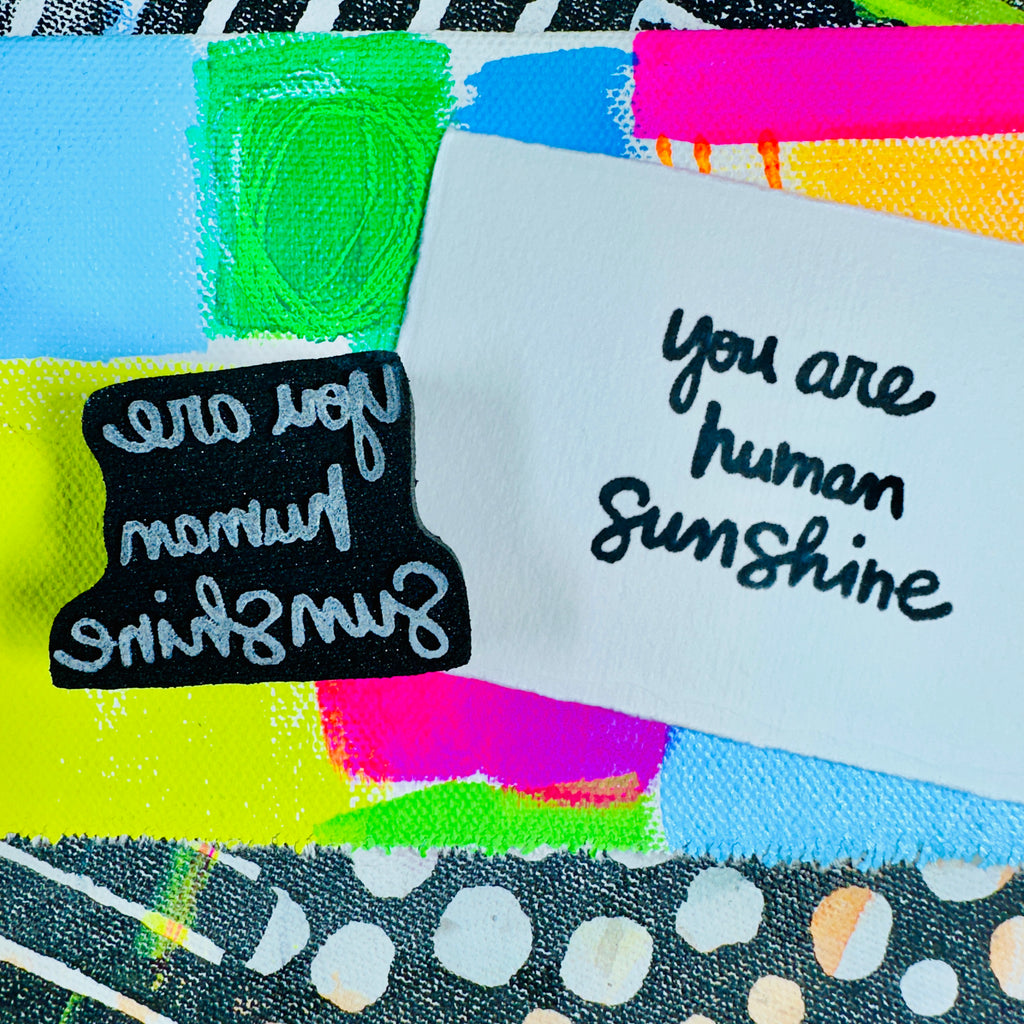 you are
human
Sunshine
you are
human
Sunshine